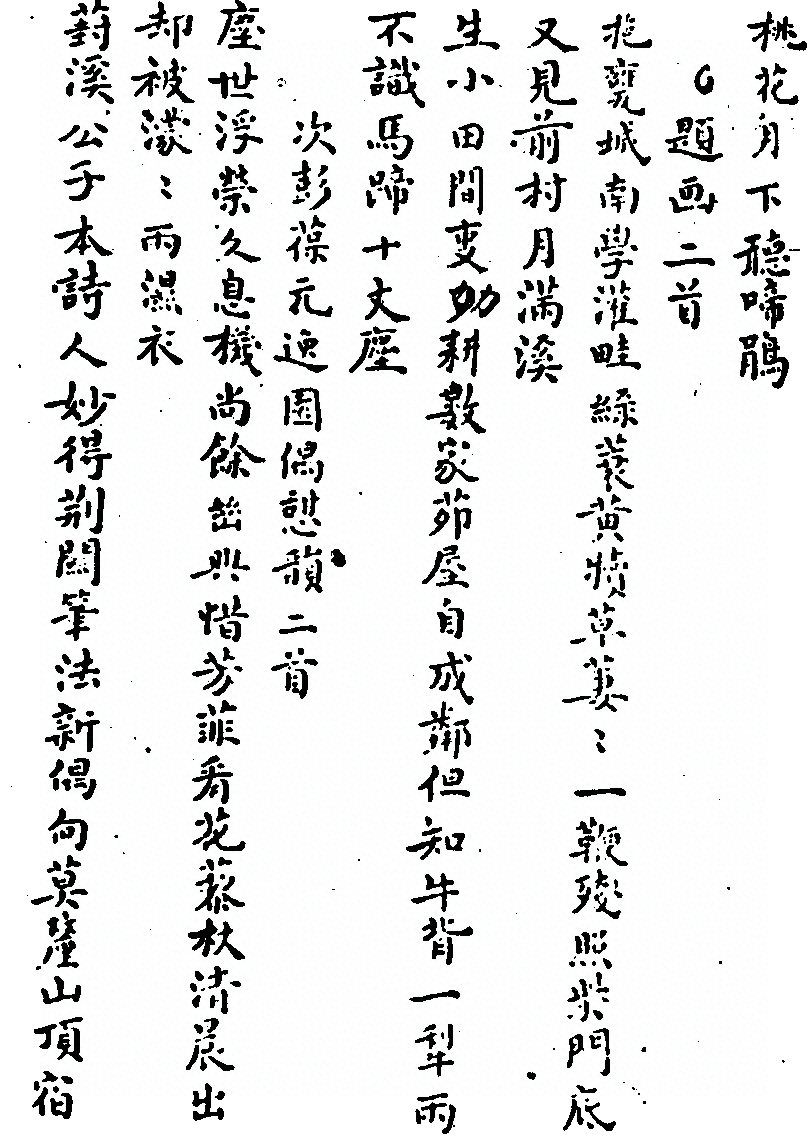 桃花月下聽啼鵑
題画二首
抱甕城南學灌畦綠蓑黃犢草萋〻一鞭殘照柴門底
又見前村月滿溪
生小田間更幼耕數家茆屋自成鄰但知牛背一犁雨
不識馬蹄十丈塵
次彭葆元逸園偶憇韻二首
塵世浮榮久息機尚餘幽興惜芳菲看花藜杖清晨出
却被濛〻雨濕衣
葑溪公子本詩人妙得荆關筆法新偶向莫釐山頂宿